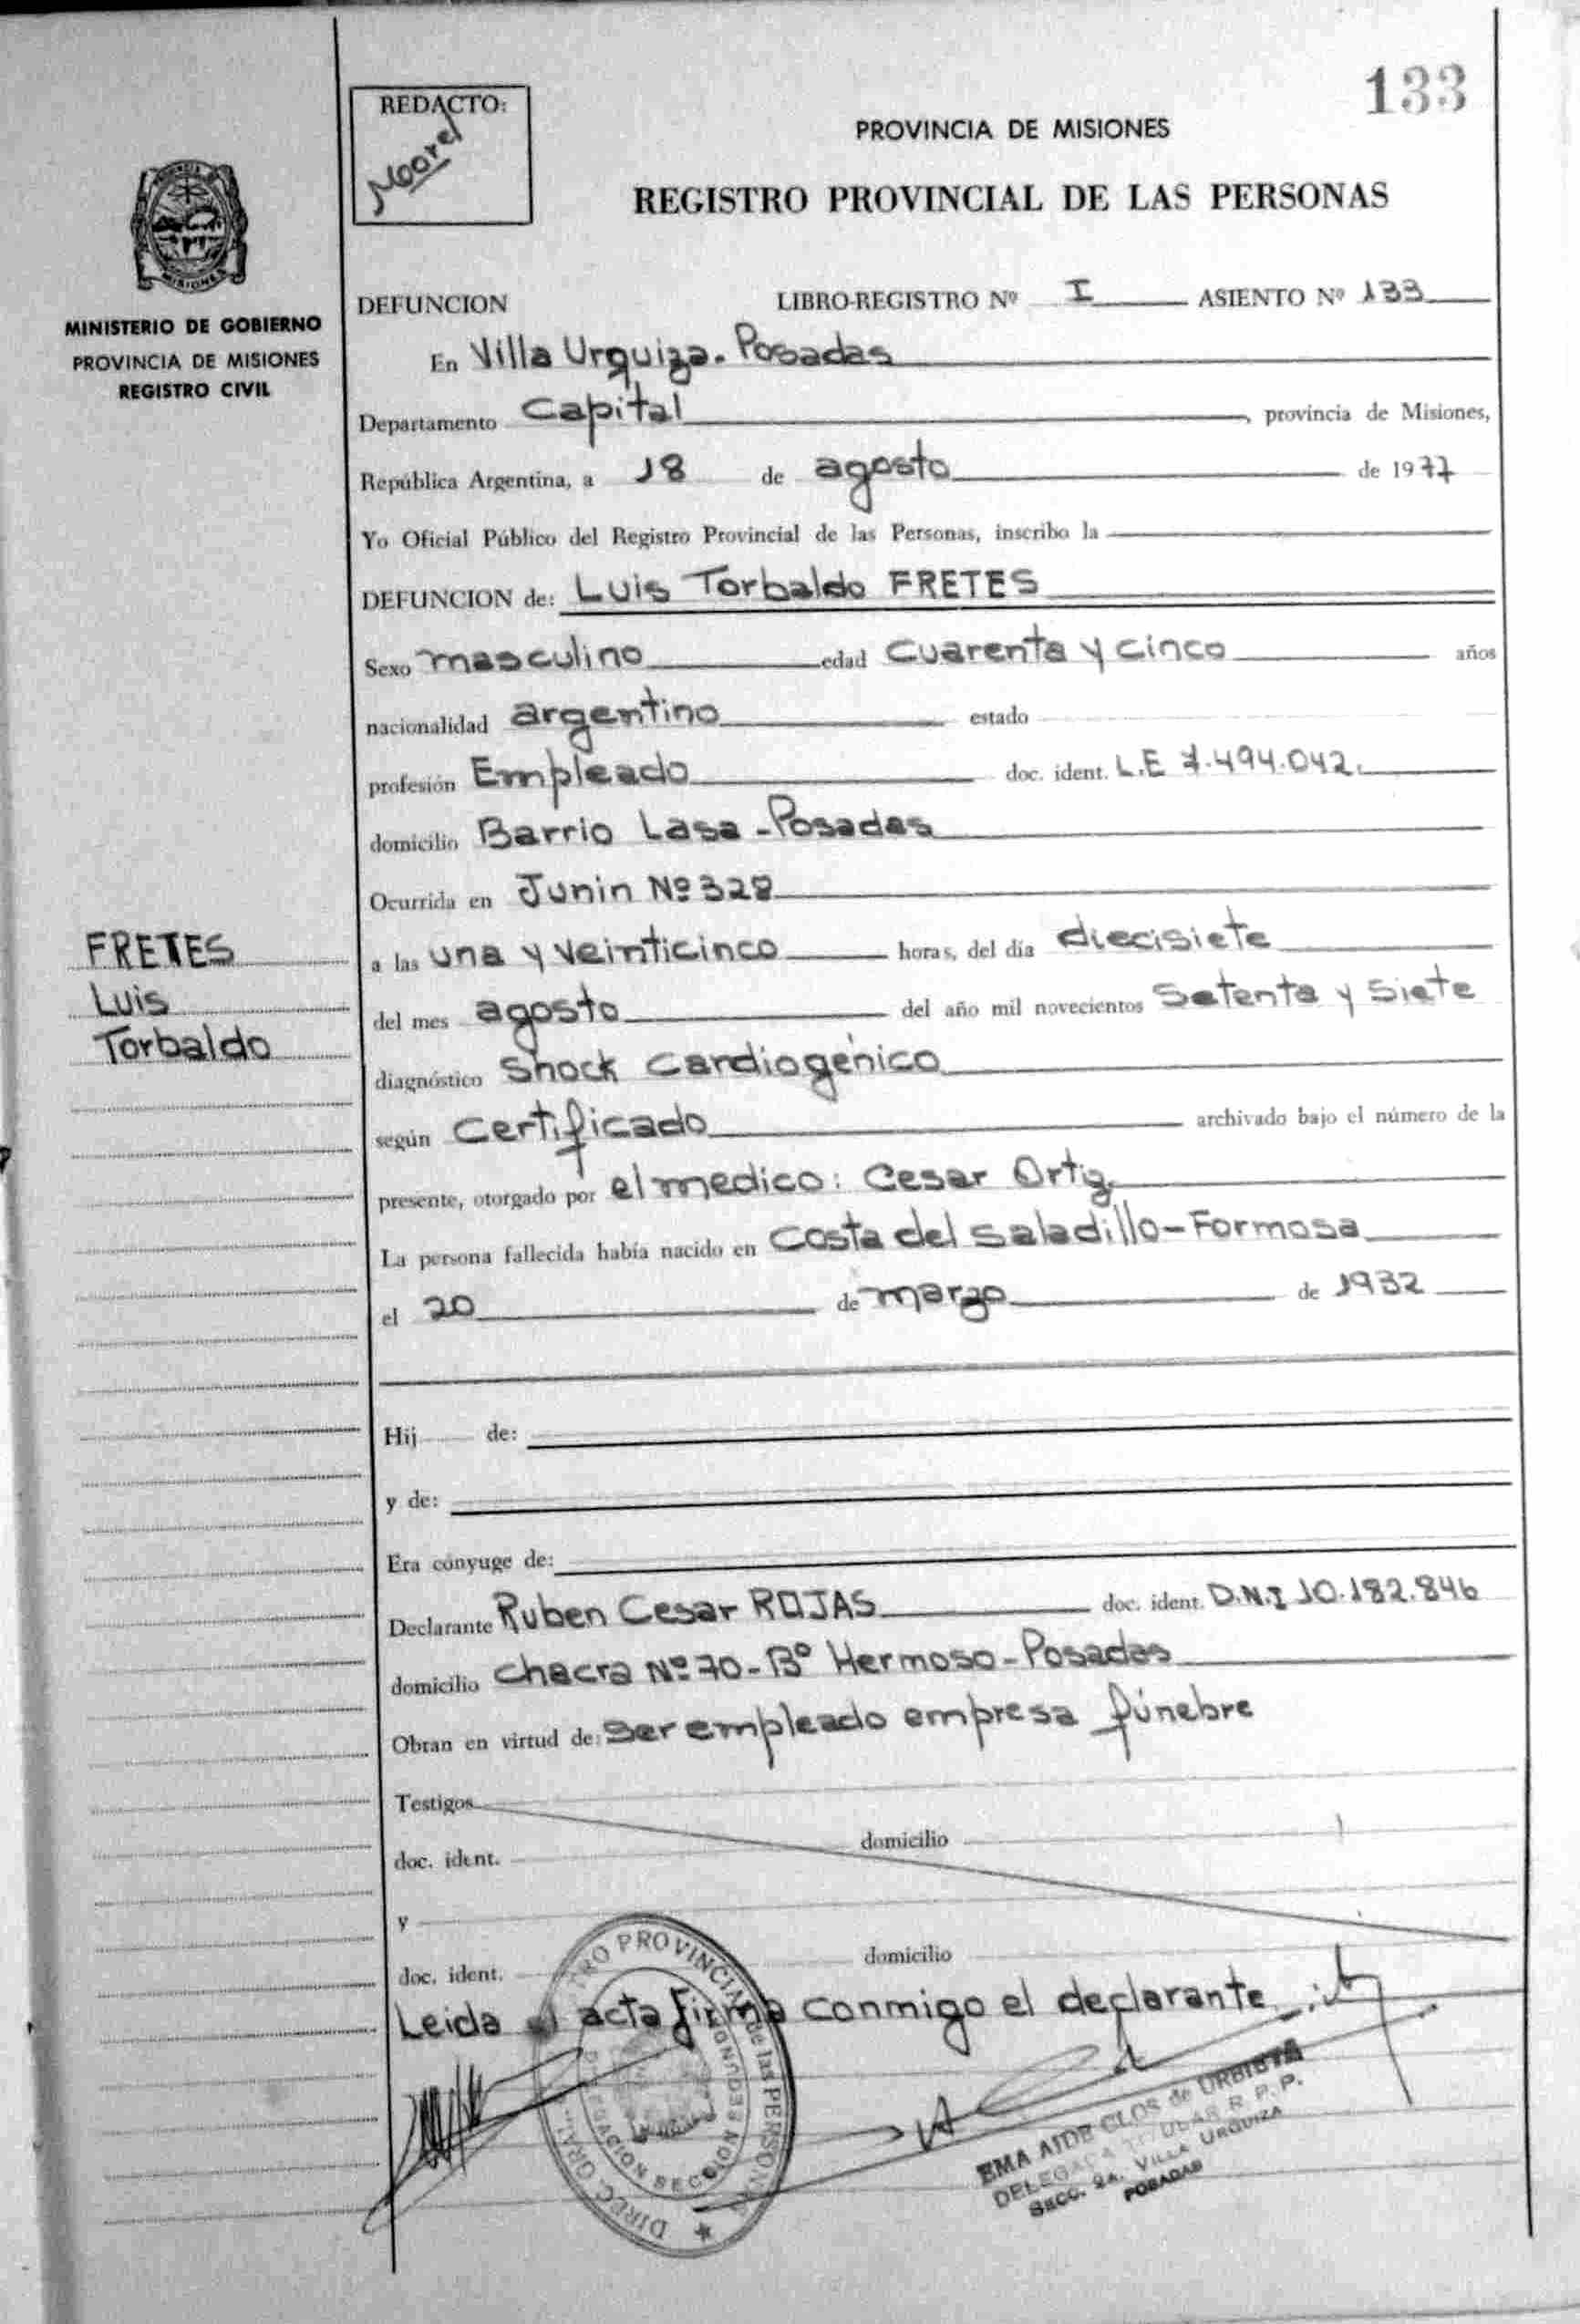 133
REDACTO:
PROVINCIA DE MISIONES
REGISTRO PROVINCIAL DE LAS PERSONAS
MISIONES
MINISTERIO DE GOBIERNO
PROVINCIA DE MISIONES
REGISTRO CIVIL
DEFUNCION LIBRO-REGISTRO Nº I ASIENTO Nº 133
En Villa Urquiza. Posadas
Departamento Capital, provincia de Misiones,
República Argentina, a 18 de agosto de 1977
Yo Oficial Público del Registro Provincial de las Personas, inscribo la
DEFUNCION de: Luis Torbaldo FRETES
Sexo masculino edad Cuarenta y cinco años
nacionalidad argentino estado
profesión Empleado doc. ident. L.E 7.494.042.
domicilio Barrio Lasa - Posadas
Ocurrida en Junin Nº 328
FRETES
Luis
Torbaldo
a las una y veinticinco horas, del día diecisiete
del mes agosto del año mil novecientos Setenta y Siete
diagnóstico Shock Cardiogénico
según Certificado archivado bajo el número de la
presente, otorgado por el medico: Cesar Ortiz.
La persona fallecida había nacido en Costa del Saladillo-Formosa
el 20 de marzo de 1932
Hij de:
y de:
Era cónyuge de:
Declarante Ruben Cesar ROJAS doc. ident. D.N.I 10.182.846
domicilio Chacra Nº 70 - Bº Hermoso - Posadas
Obran en virtud de: Ser empleado empresa fúnebre
Testigos
doc. ident. domicilio
y
doc. ident. domicilio
Leida el acta firma conmigo el declarante
DIREC. GRAL. REGISTRO PROVINCIAL de las PERSONAS
DELEGACION SECCION SEGUNDA
EMA AIDE CLOS de URBISTA
DELEGADA TITULAR R. P. P.
SECC. 2A. VILLA URQUIZA
POSADAS